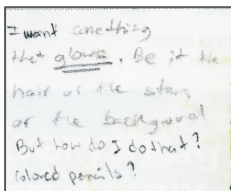 I want something
that glows. Be it the
hair or the siren
or the background
But how do I do that?
Colored pencils?